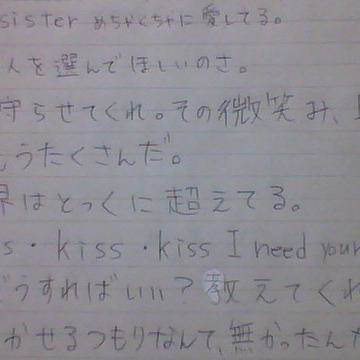 sister めちゃくちゃに愛してる。
人を選んでほしいのさ。
守らせてくれ。その微笑み、
うたくさんだ。
界はとっくに超えてる。
s・kiss・kiss I need your
どうすればいい？教えてくれ
かせるつもりなんて、無かったんだ